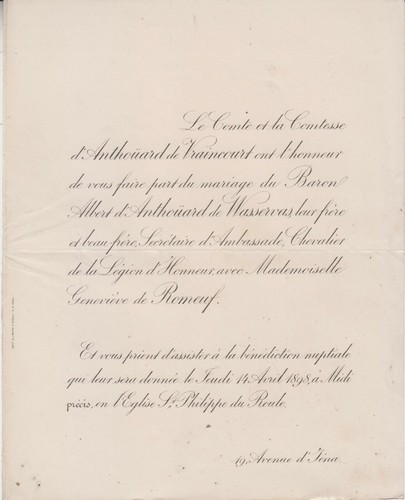 Le Comte et la Comtesse
d'Anthoüard de Vraincourt ont l'honneur
de vous faire part du mariage du Baron
Albert d'Anthoüard de Wasservas, leur frère
et beau-frère, Secrétaire d'Ambassade, Chevalier
de la Légion d'Honneur, avec Mademoiselle
Geneviève de Romeuf.
Et vous prient d'assister à la bénédiction nuptiale
qui leur sera donnée le Jeudi 14 Avril 1898, à Midi
précis, en l'Eglise St. Philippe du Roule.
19, Avenue d'Iéna